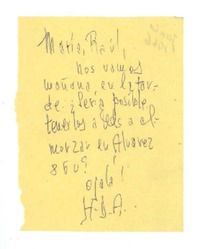 María, Raúl,
nos vamos
mañana, en la tar-
de. ¿Será posible
tenerlos a Uds a al-
morzar en Alvarez
860?
Ojalá!
H.D.A.